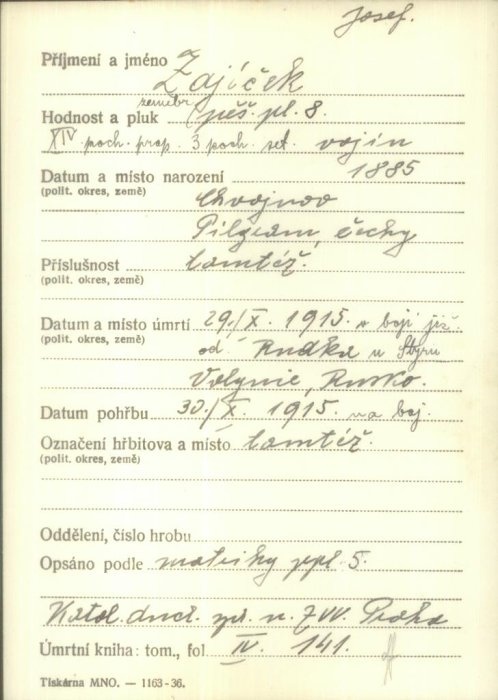 Josef.
Příjmení a jméno Zajíček
Hodnost a pluk zeměbr. pěš. pl. 8.
XIV. poch. prap. 3 poch. set. vojín
Datum a místo narození 1885
(polit. okres, země)
Chvojnov
Pilgram, Čechy
Příslušnost tamtéž.
(polit. okres, země)
Datum a místo úmrtí 29./X. 1915. v boji již.
(polit. okres, země)
od Rudka u Styru
Volynie, Rusko.
Datum pohřbu 30./X. 1915. na boj.
Označení hřbitova a místo tamtéž.
(polit. okres, země)
Oddělení, číslo hrobu
Opsáno podle matriky ppl. 5.
Katol. duch. spr. u ZVV. Praha
Úmrtní kniha: tom., fol IV. 141.
Tiskárna MNO. — 1163-36.